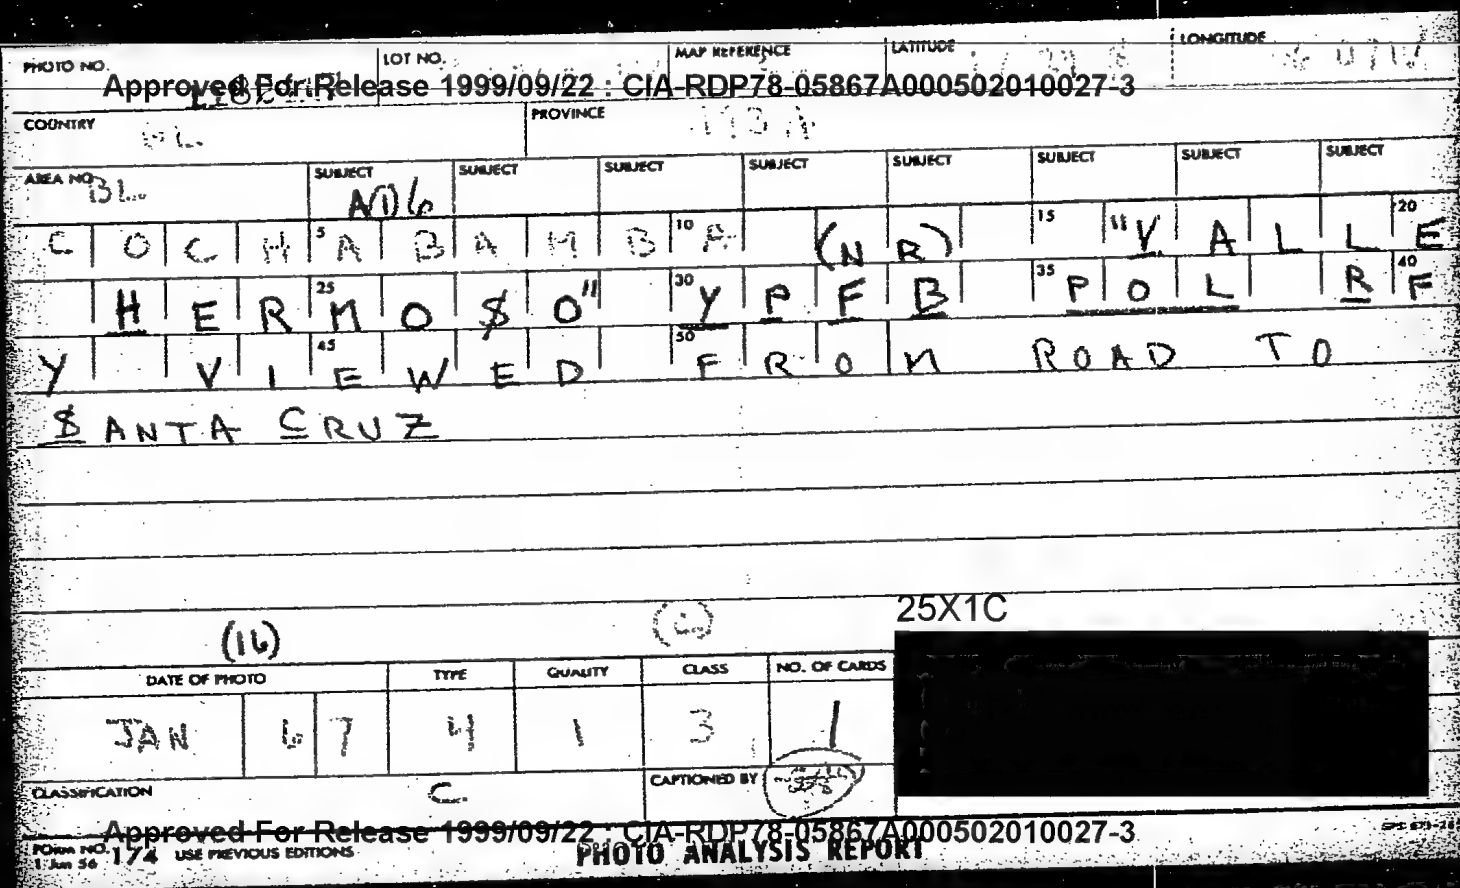 PHOTO NO. LOT NO. MAP REFERENCE LATITUDE LONGITUDE
Approved For Release 1999/09/22 : CIA-RDP78-05867A000502010027-3
COUNTRY PROVINCE
AREA NO. BL SUBJECT SUBJECT SUBJECT SUBJECT SUBJECT SUBJECT SUBJECT SUBJECT
COCHABAMBA (NR) "VALLE
5 10 15 20
HERMOSO" YPFB POL RF
25 30 35 40
Y VIEWED FROM ROAD TO
45 50
SANTA CRUZ
25X1C
(16)
DATE OF PHOTO TYPE QUALITY CLASS NO. OF CARDS
JAN 67 4 1 3 1
CLASSIFICATION C CAPTIONED BY
Approved For Release 1999/09/22 : CIA-RDP78-05867A000502010027-3
FORM NO. 174 USE PREVIOUS EDITIONS PHOTO ANALYSIS REPORT
1 Jun 56